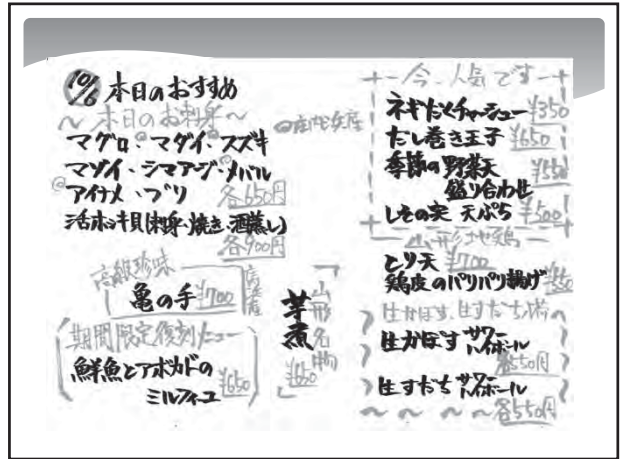 10/6 本日のおすすめ
〜本日のお刺身〜
マグロ・マダイ・スズキ
マゾイ・シマアジ・メバル
アイナメ・ブリ 各650円
活ホッキ貝(刺身・焼き・酒蒸し)
各900円
高級珍味
亀の手 ¥700
期間限定復刻メニュー
鮮魚とアボカドの
ミルフィーユ ¥650
山形名物
芋煮
¥650
今、人気です
ネギだくチャーシュー ¥350
だし巻き玉子 ¥650
季節の野菜天
盛り合わせ ¥550
しその実 天ぷら ¥500
山形地鶏
とり天 ¥700
鶏皮のパリパリ揚げ
生かぼす、生すだち
生かぼす サワー
ハイボール
各550円
生すだち サワー
ハイボール
各550円